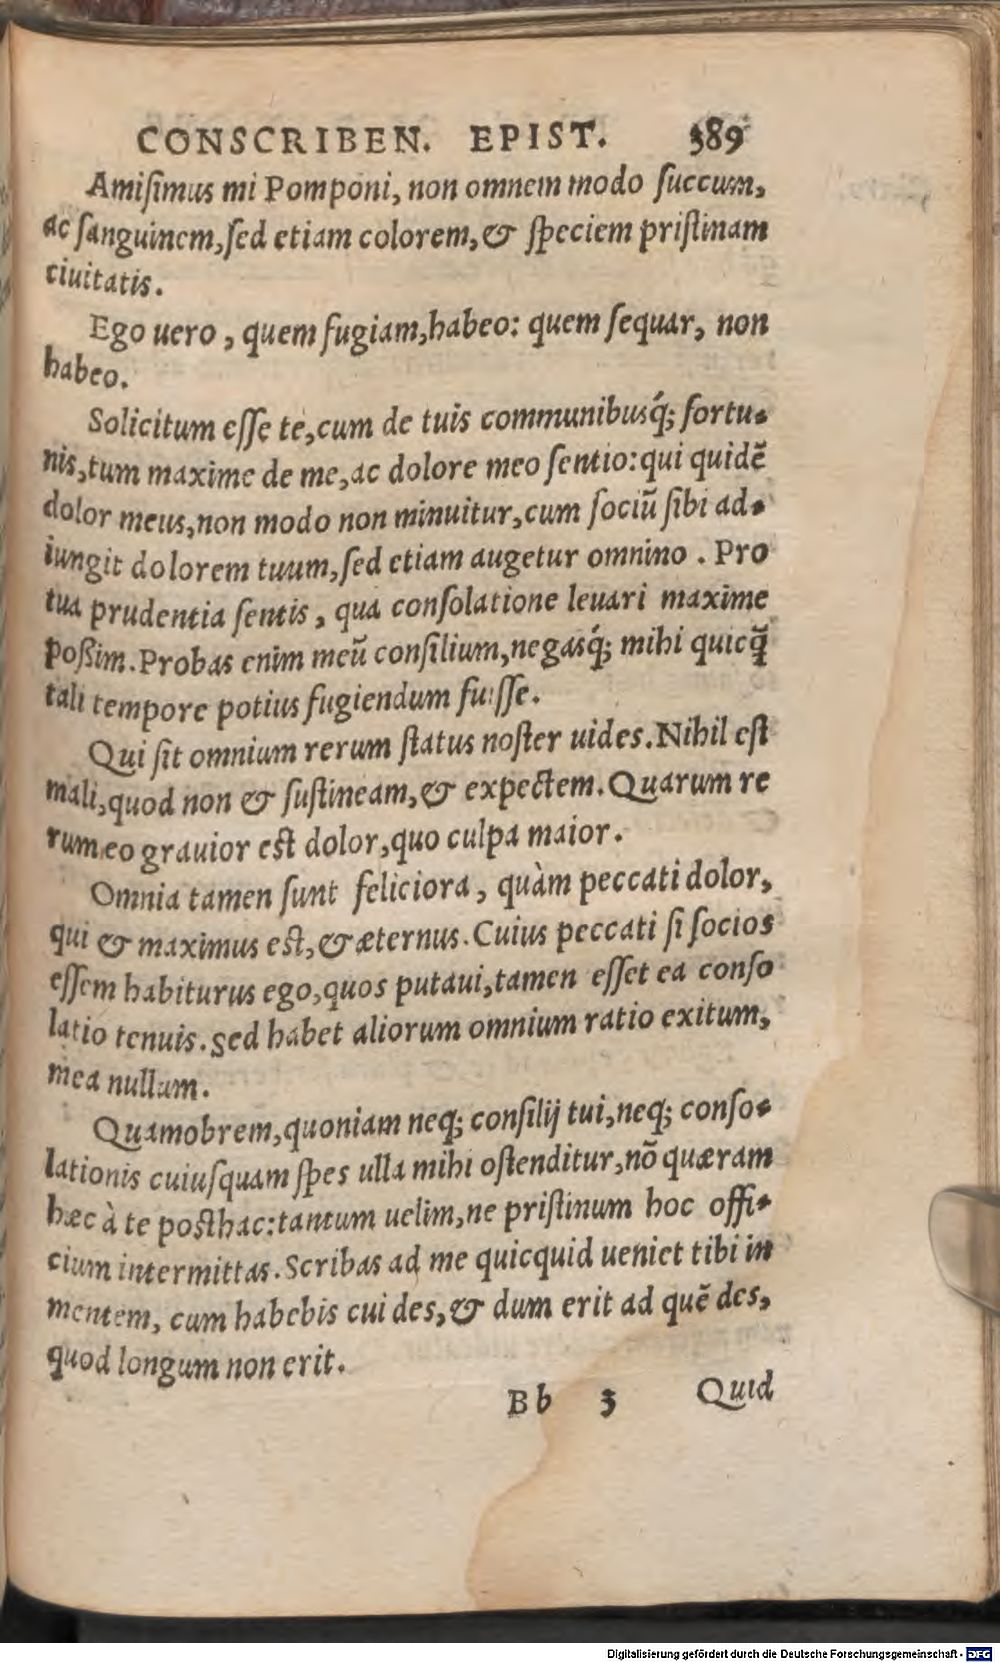 CONSCRIBEN. EPIST. 389
Amiſimus mi Pomponi, non omnem modo ſuccum,
ac ſanguinem, ſed etiam colorem, & ſpeciem priſtinam
ciuitatis.
Ego uero, quem fugiam, habeo: quem ſequar, non
habeo.
Solicitum eſſe te, cum de tuis communibusq́; fortu-
nis, tum maxime de me, ac dolore meo ſentio: qui quidē
dolor meus, non modo non minuitur, cum ſociũ ſibi ad-
iungit dolorem tuum, ſed etiam augetur omnino. Pro
tua prudentia ſentis, qua conſolatione leuari maxime
poßim. Probas enim meũ conſilium, negasq́; mihi quicq̃
tali tempore potius fugiendum fuiſſe.
Qui ſit omnium rerum ſtatus noſter uides. Nihil eſt
mali, quod non & ſuſtineam, & expectem. Quarum re
rum eo grauior eſt dolor, quo culpa maior.
Omnia tamen ſunt feliciora, quàm peccati dolor,
qui & maximus eſt, & æternus. Cuius peccati ſi ſocios
eſſem habiturus ego, quos putaui, tamen eſſet ea conſo
latio tenuis. Sed habet aliorum omnium ratio exitum,
mea nullum.
Quamobrem, quoniam neq; conſilij tui, neq; conſo-
lationis cuiuſquam ſpes ulla mihi oſtenditur, nõ quæram
hæc à te poſthac: tantum uelim, ne priſtinum hoc offi-
cium intermittas. Scribas ad me quicquid ueniet tibi in
mentem, cum habebis cui des, & dum erit ad quē des,
quod longum non erit.
Bb 3 Quid
Digitalisierung gefördert durch die Deutsche Forschungsgemeinschaft - DFG